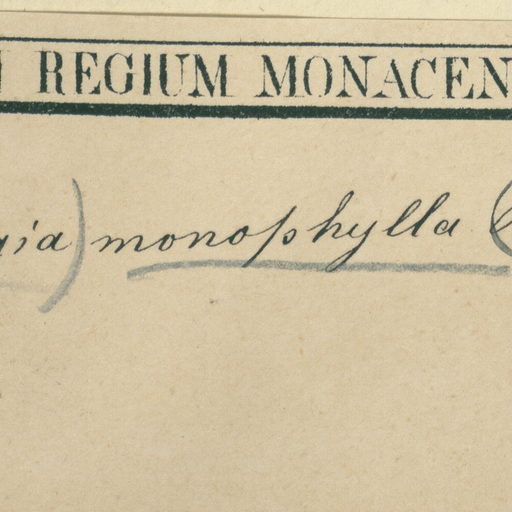 REGIUM MONACEN
monophylla